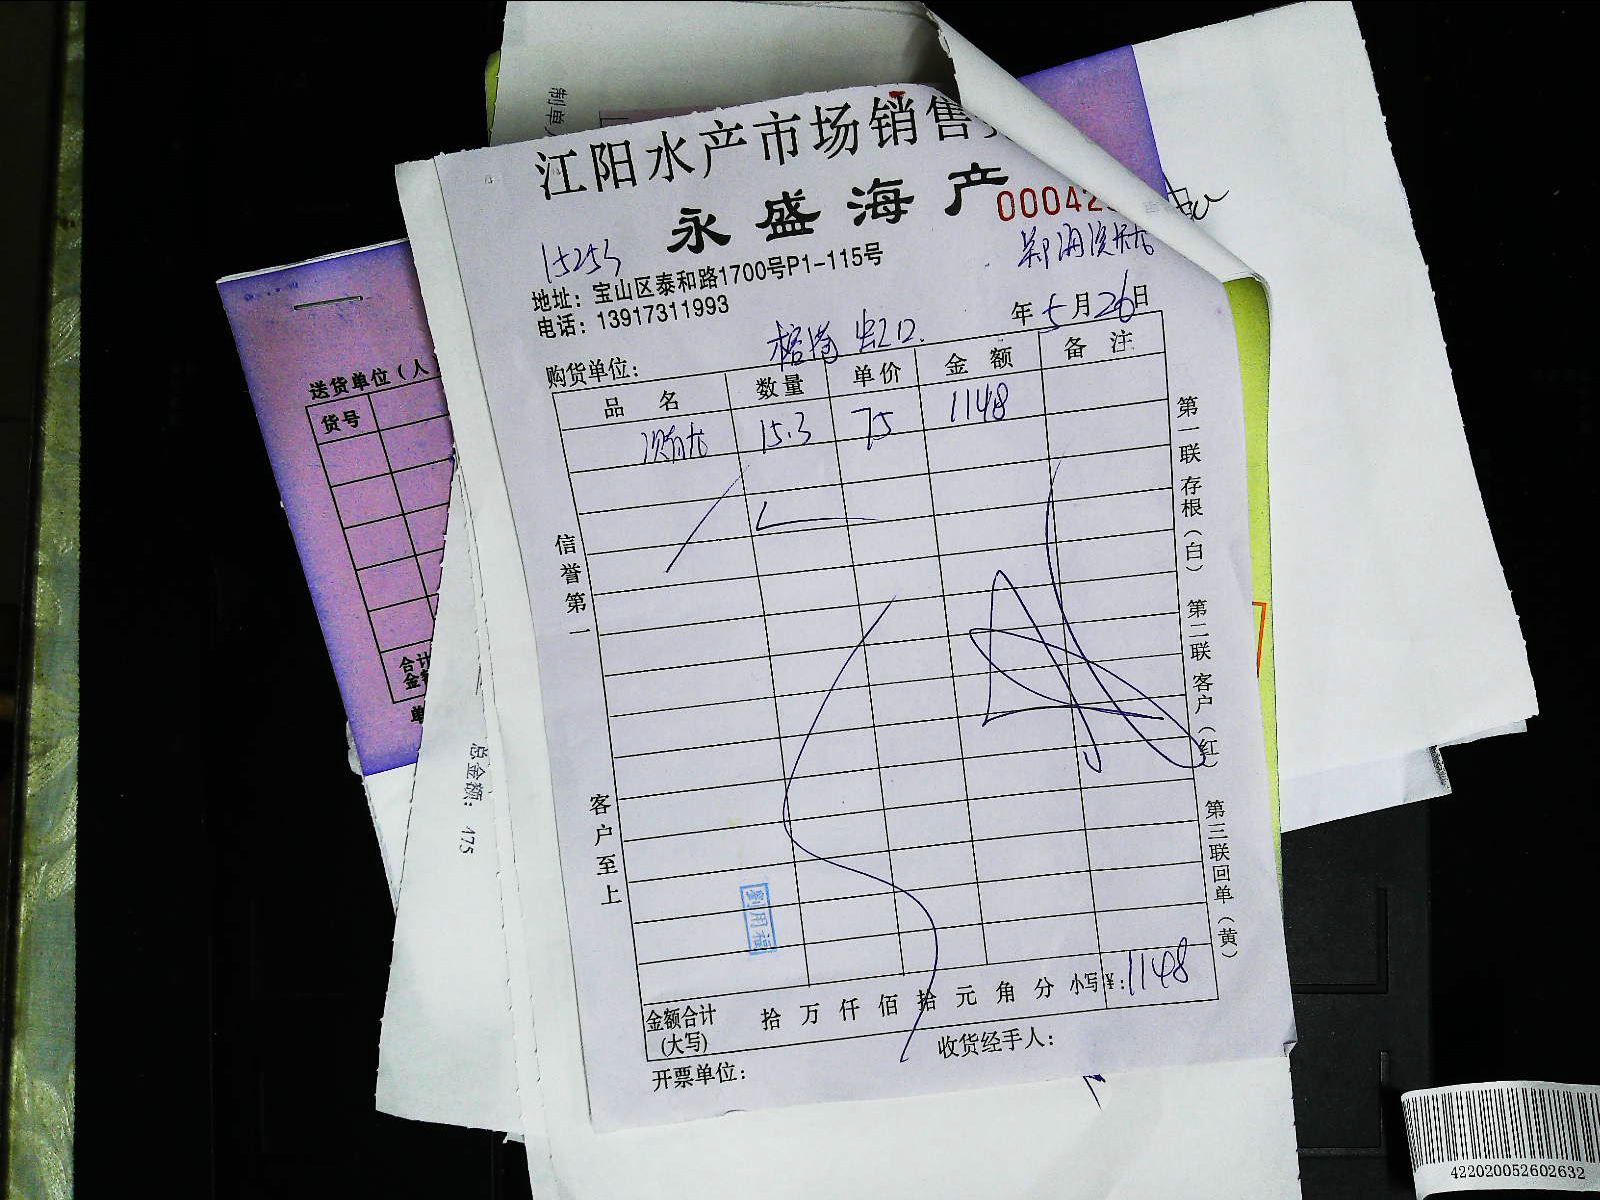 制单
江阳水产市场销售
永盛海产
00042
15253
地址：宝山区泰和路1700号P1-115号
电话：13917311993
年 5 月 26 日
购货单位： 虹口
品 名 数量 单价 金 额 备 注
15.3 75 1148
信誉第一
客户至上
第一联 存根（白） 第二联 客户（红） 第三联 回单（黄）
劉用福
金额合计(大写) 拾 万 仟 佰 拾 元 角 分 小写¥：1148
开票单位： 收货经手人：
送货单位（人
货号
合计
金额
单
总金额：475
422020052602632